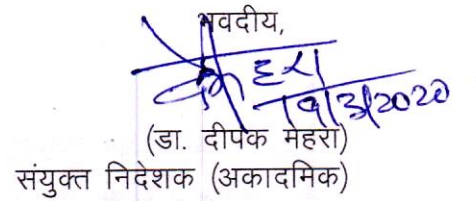 भवदीय,
19/3/2020
(डा. दीपक मेहरा)
संयुक्त निदेशक (अकादमिक)